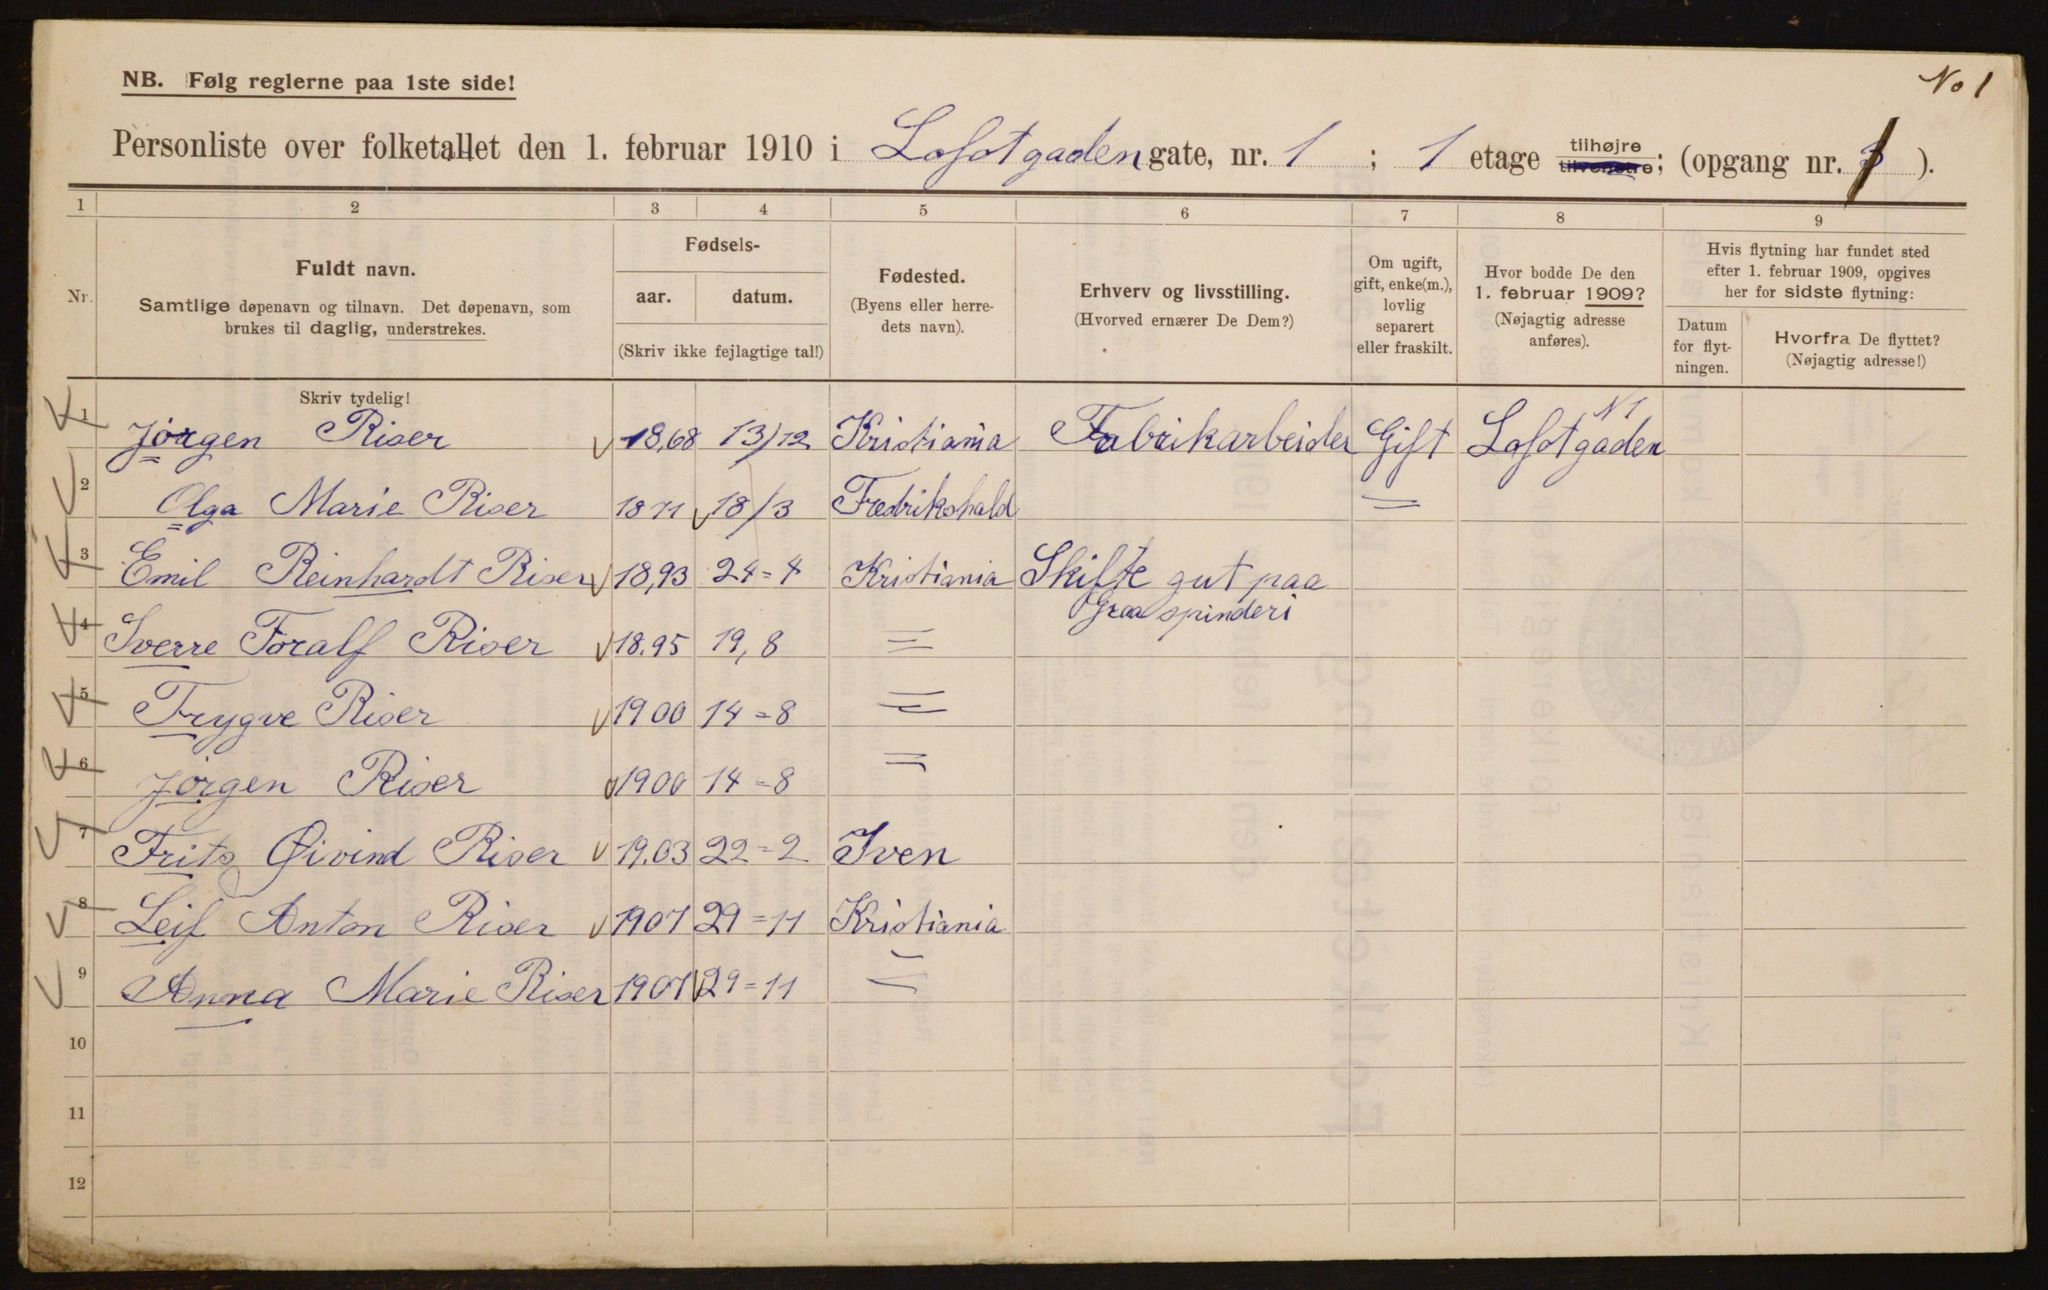 No 1
NB. Følg reglerne paa 1ste side!
Personliste over folketallet den 1. februar 1910 i Lofotgaden gate, nr. 1 ; 1 etage tilhøjre tilvenstre; (opgang nr. 1 ).
1 2 3 4 5 6 7 8 9
Nr.
Fuldt navn.
Samtlige døpenavn og tilnavn. Det døpenavn, som
brukes til daglig, understrekes.
Skriv tydelig!
Fødsels-
aar. datum.
(Skriv ikke fejlagtige tal!)
Fødested.
(Byens eller herre-
dets navn).
Erhverv og livsstilling.
(Hvorved ernærer De Dem?)
Om ugift,
gift, enke(m.),
lovlig
separert
eller fraskilt.
Hvor bodde De den
1. februar 1909?
(Nøjagtig adresse
anføres).
Hvis flytning har fundet sted
efter 1. februar 1909, opgives
her for sidste flytning:
Datum
for flyt-
ningen.
Hvorfra De flyttet?
(Nøjagtig adresse!)
1 Jørgen Riser 18,68 13/12 Kristiania Fabrikarbeider Gift Lofotgaden N 1
2 Olga Marie Riser 1871 18/3 Fredrikshald =
3 Emil Reinhardt Riser 18,93 24=4 Kristiania Skifte gut paa
Graa spinderi
4 Sverre Toralf Riser 18.95 19,8 =
5 Trygve Riser 1900 14=8 =
6 Jørgen Riser 1900 14=8 =
7 Frits Øivind Riser 19.03 22=2 Sven
8 Leif Anton Riser 1907 29=11 Kristiania
9 Anna Marie Riser 1907 29=11 =
10
11
12